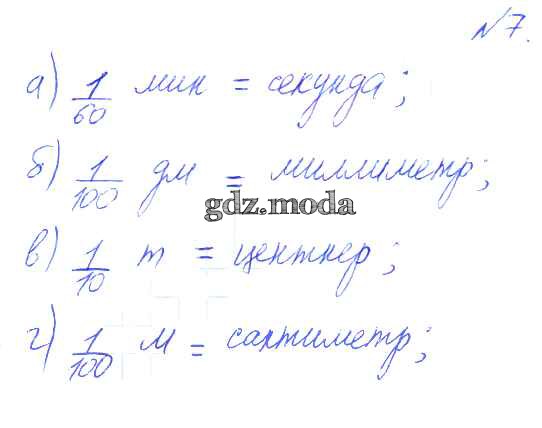 №7.
а) 1/60 мин = секунда;
б) 1/100 дм = миллиметр;
gdz.moda
в) 1/10 т = центнер;
г) 1/100 м = сантиметр;